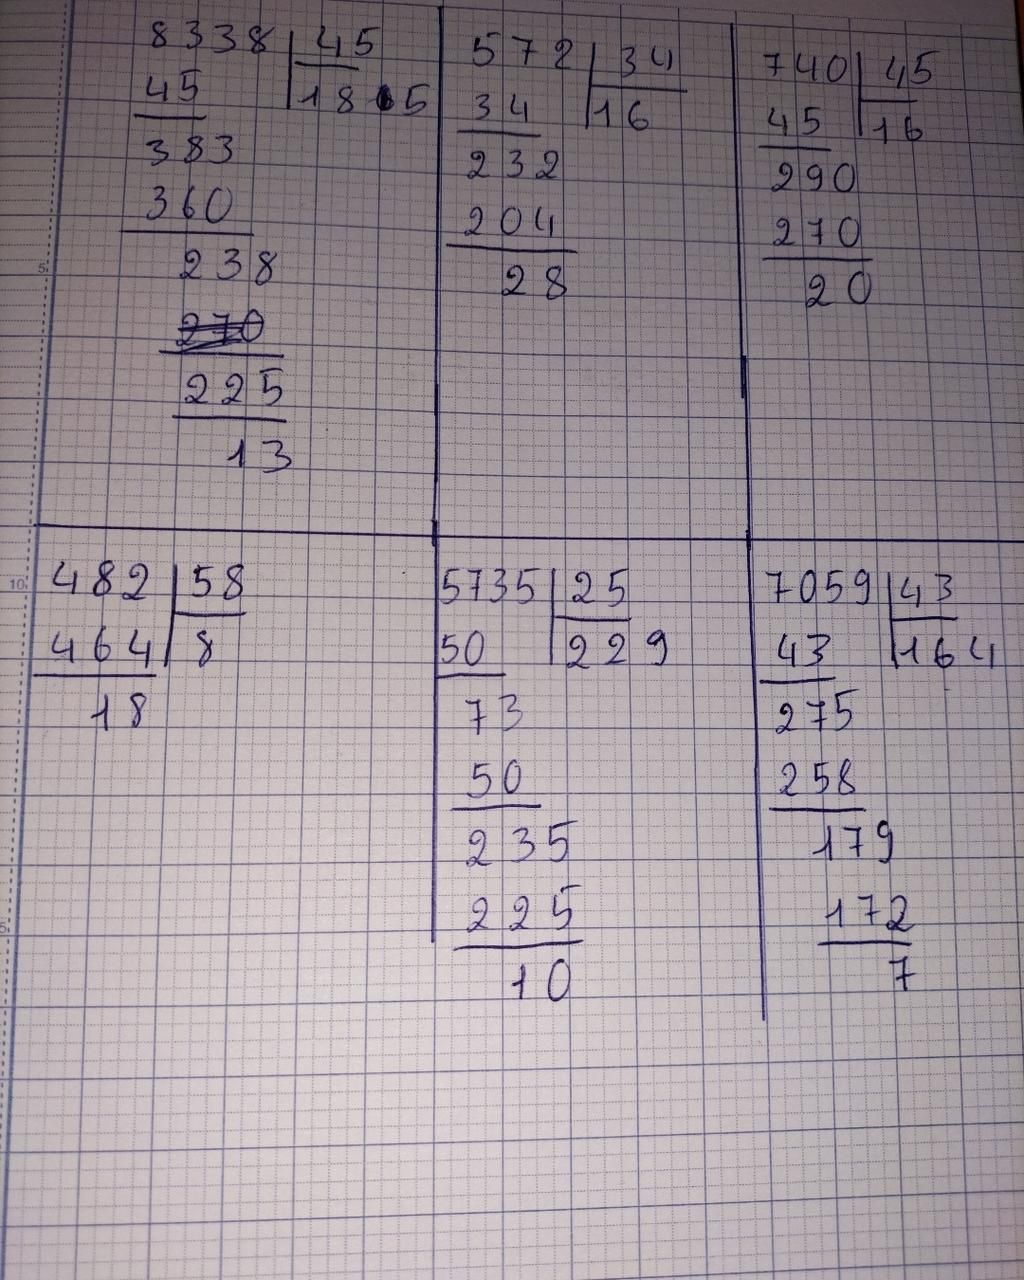 8338 45
45 185
383
360
238
270
225
13
572 34
34 16
232
204
28
740 45
45 16
290
270
20
482 58
464 8
18
5735 25
50 229
73
50
235
225
10
7059 43
43 164
275
258
179
172
7
5
10